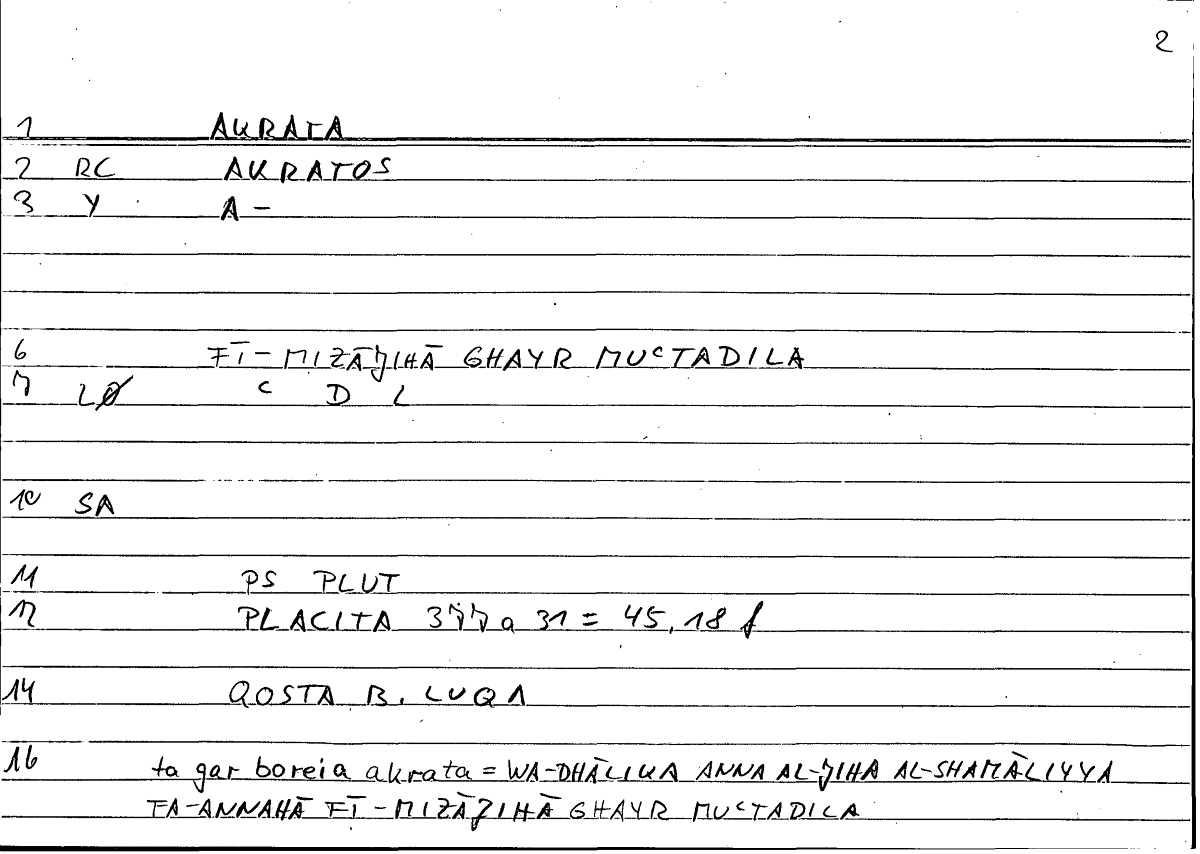 2
1 AKRATA
2 RC AKRATOS
3 Y A-
6 FĪ-MIZĀJIHĀ GHAYR MUᶜTADILA
7 LØ ᶜ D L
10 SA
11 PS PLUT
12 PLACITA 377 a 31 = 45,18 f
14 QOSTA B. LUQA
16 ta gar boreia akrata = WA-DHĀLIKA ANNA AL-JIHA AL-SHAMĀLIYYA
FA-ANNAHĀ FĪ-MIZĀJIHĀ GHAYR MUᶜTADILA